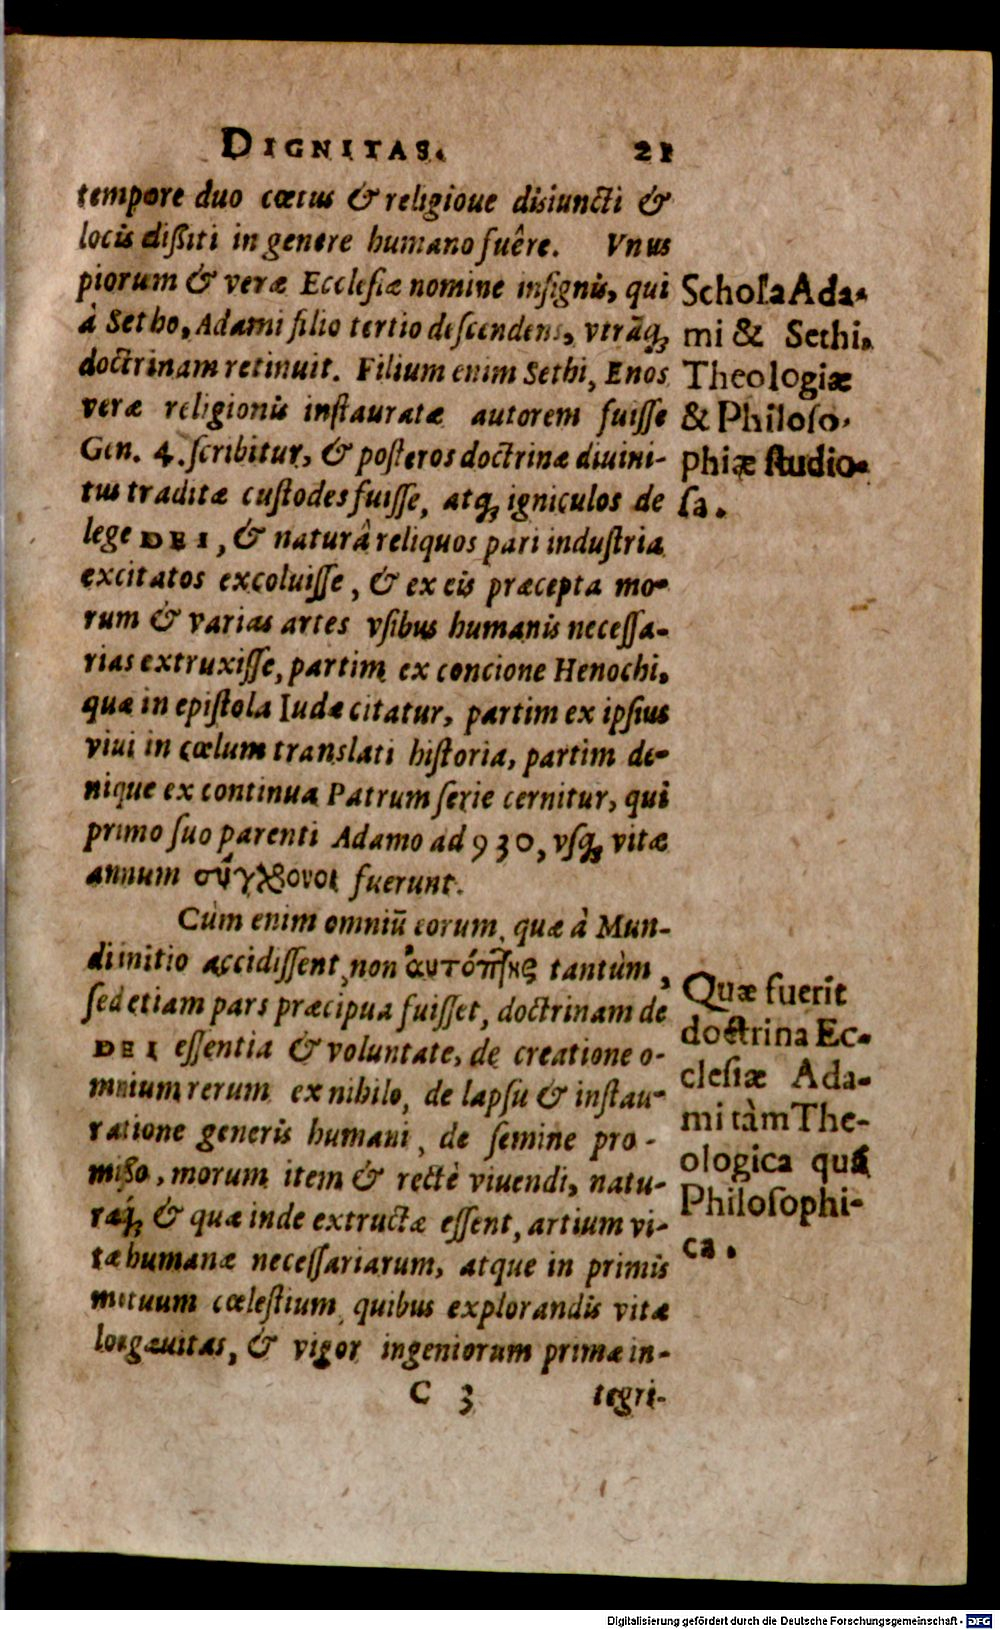 DIGNITAS. 21
tempore duo cœtus & religioue disiuncti &
locis dißiti in genere humano fuêre. Vnus
piorum & veræ Ecclesiæ nomine insignis, qui
à Setho, Adami filio tertio descendens, vtrāq;
doctrinam retinuit. Filium enim Sethi, Enos
veræ religionis instauratæ autorem fuisse
Gen. 4. scribitur, & posteros doctrinæ diuini-
tus traditæ custodes fuisse, atq; igniculos de
lege DEI, & naturâ reliquos pari industria
excitatos excoluisse, & ex eis præcepta mo-
rum & varias artes vsibus humanis necessa-
rias extruxisse, partim ex concione Henochi,
quæ in epistola Iudæ citatur, partim ex ipsius
viui in cœlum translati historia, partim de-
nique ex continua Patrum serie cernitur, qui
primo suo parenti Adamo ad 930, vsq; vitæ
annum σύγχρονοι fuerunt.
Cùm enim omniū eorum, quæ à Mun-
di initio accidissent, non αὐτόπται tantùm,
sed etiam pars præcipua fuisset, doctrinam de
DEI essentia & voluntate, de creatione o-
mnium rerum ex nihilo, de lapsu & instau-
ratione generis humani, de semine pro-
mißo, morum item & rectè viuendi, natu-
ræq; & quæ inde extructæ essent, artium vi-
tæ humanæ necessariarum, atque in primis
motuum cœlestium, quibus explorandis vitæ
longæuitas, & vigor ingeniorum primæ in-
C 3 tegri-
Schola Ada-
mi & Sethi,
Theologiæ
& Philoso-
phiæ studio-
sa.
Quæ fuerit
doctrina Ec-
clesiæ Ada-
mi tàm The-
ologica quã
Philosophi-
ca.
Digitalisierung gefördert durch die Deutsche Forschungsgemeinschaft - DFG